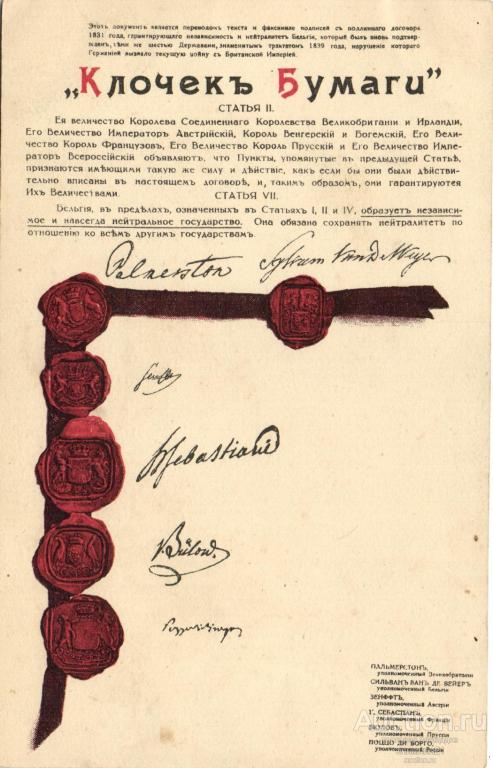 Этотъ документъ является переводомъ текста и факсимиле подписей съ подлиннаго договора
1831 года, гарантирующаго независимость и нейтралитетъ Бельгіи, который былъ вновь подтвер-
жденъ, тѣми же шестью Державами, знаменитымъ трактатомъ 1839 года, нарушеніе котораго
Германіей вызвало текущую войну съ Британской Имперіей.
„Клочекъ Бумаги”
СТАТЬЯ II.
Ея величество Королева Соединеннаго Королевства Великобританіи и Ирландіи,
Его Величество Императоръ Австрійскій, Король Венгерскій и Богемскій, Его Вели-
чество Король Французовъ, Его Величество Король Прусскій и Его Величество Импе-
раторъ Всероссійскій объявляютъ, что Пункты, упомянутые въ предыдущей Статьѣ,
признаются имѣющими такую же силу и дѣйствіе, какъ если бы они были дѣйстви-
тельно вписаны въ настоящемъ договорѣ, и, такимъ образомъ, они гарантируются
Ихъ Величествами.
СТАТЬЯ VII.
Бельгія, въ предѣлахъ, означенныхъ въ Статьяхъ I, II и IV, образуетъ независи-
мое и навсегда нейтральное государство. Она обязана сохранять нейтралитетъ по
отношенію ко всѣмъ другимъ государствамъ.
Palmerston Sylvain Van de Weyer
Senfft
H Sebastiani
Bülow
Pozzo di Borgo
ПАЛЬМЕРСТОНЪ,
уполномоченный Великобританіи
СИЛЬВАНЪ ВАНЪ ДЕ ВЕЙЕРЪ
уполномоченный Бельгіи
ЗЕНФФТЪ,
уполномоченный Австріи
Г. СЕБАСТІАНИ,
уполномоченный Франціи
БЮЛОВЪ,
уполномоченный Пруссіи
ПОЦЦО ДИ БОРГО,
уполномоченный Россіи
Auction.ru